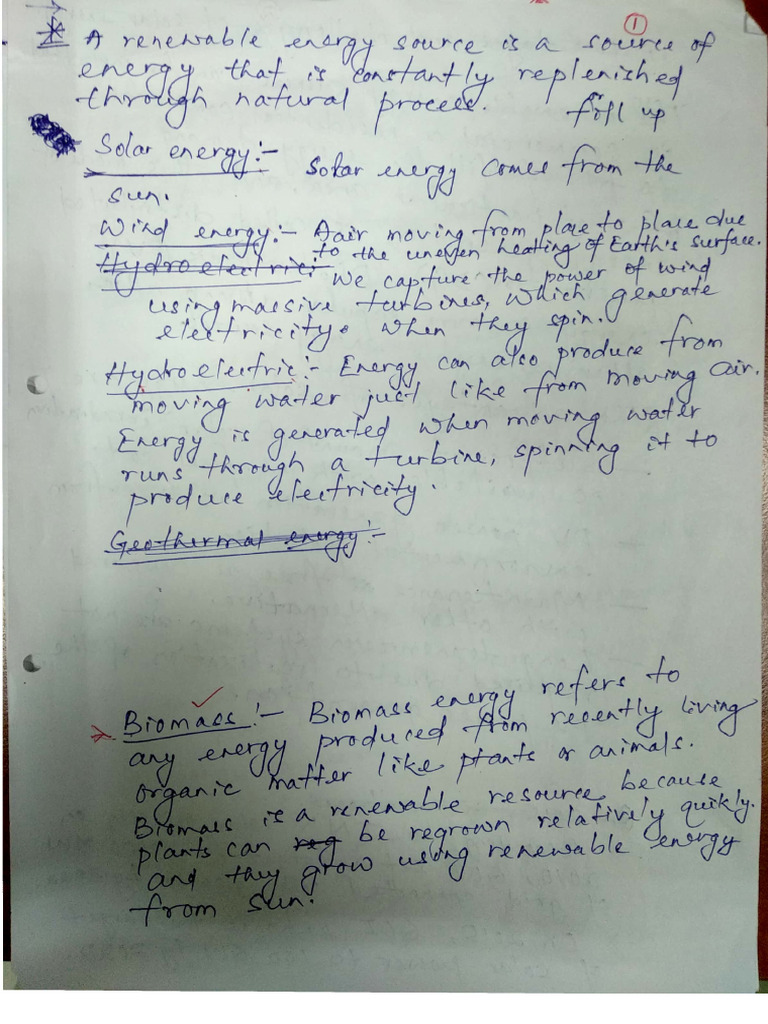 ①
* A renewable energy source is a source of
energy that is constantly replenished
through natural process. fill up
Solar energy:- Solar energy comes from the
sun.
Wind energy:- Aair moving from place to place due
to the uneven heating of Earth's surface.
Hydroelectrici We capture the power of wind
using massive turbines, which generate
electricity. when they spin.
Hydroelectric:- Energy can also produce from
moving water just like from moving air.
Energy is generated when moving water
runs through a turbine, spinning it to
produce electricity.
Geothermal energy:-
Biomass:- Biomass energy refers to
any energy produced from recently living
organic matter like plants or animals.
Biomass is a renewable resource because
plants can reg be regrown relatively quikly.
and they grow using renewable energy
from sun.